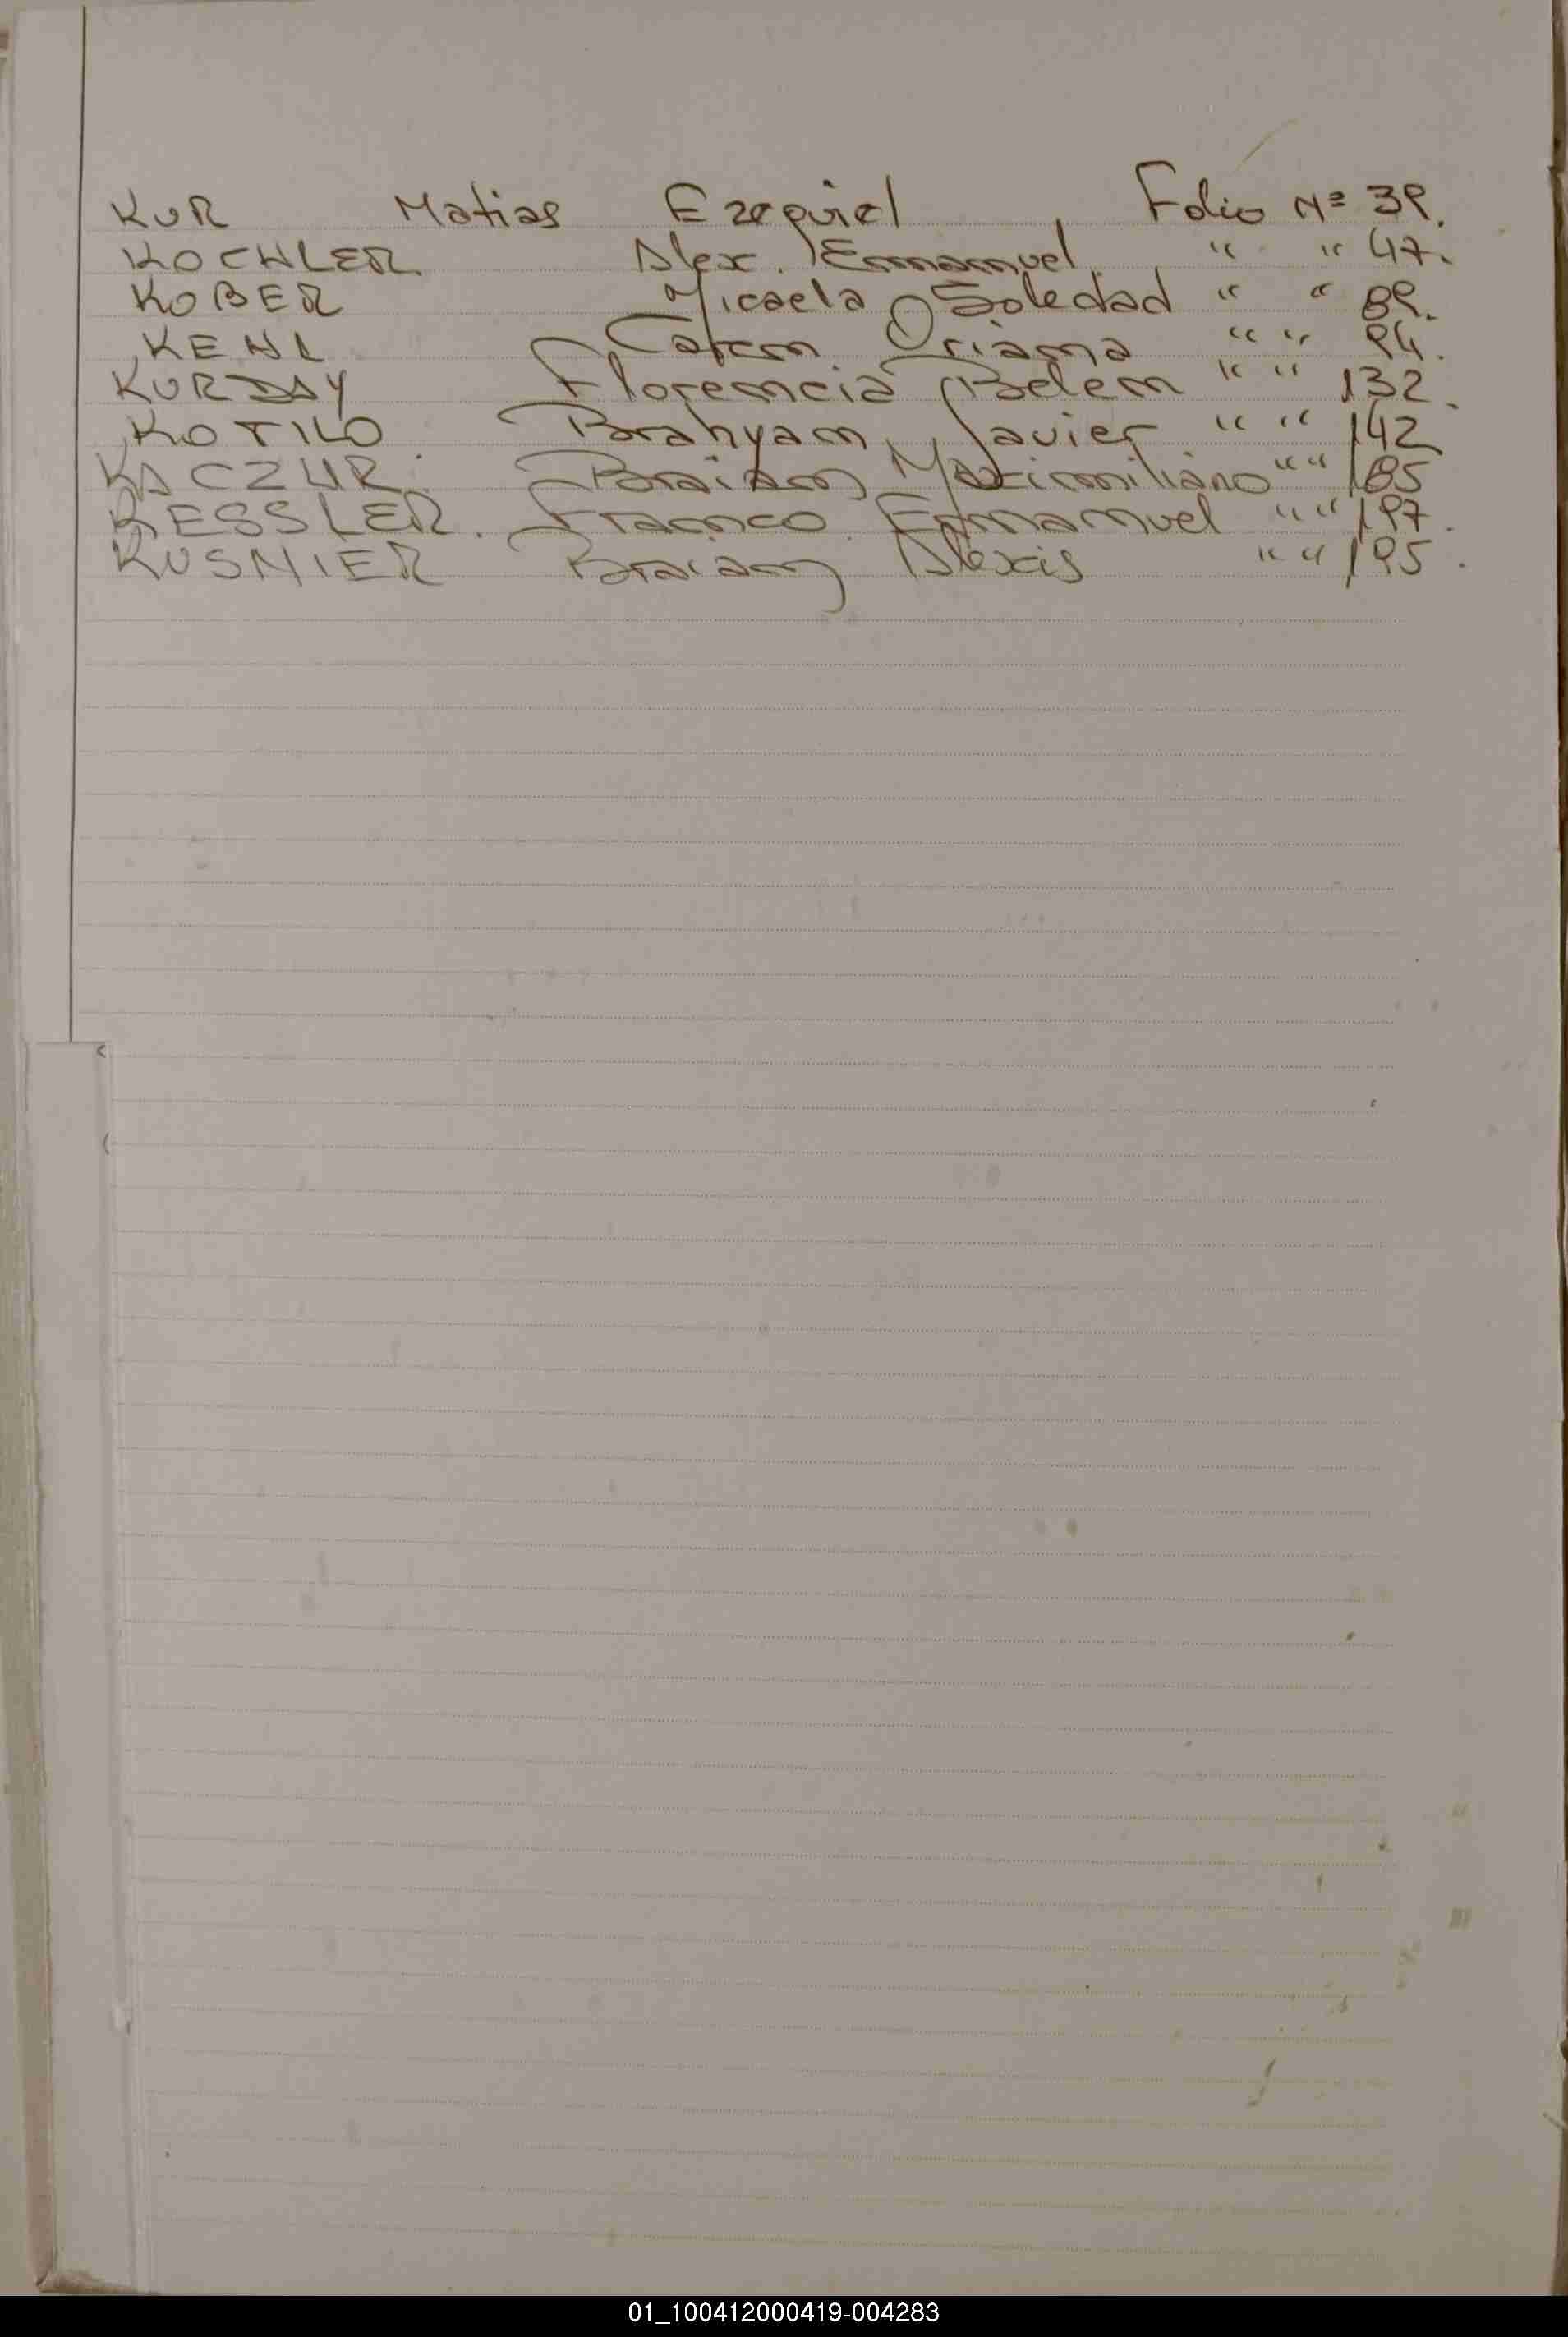 KUR Matias Ezequiel Folio Nº 39.
KOCHLER Alex. Emmanuel " " 47.
KOBER Micaela Soledad " " 89.
KENL Oriana " " 94.
KURDAY Florencia Belen " " 132.
KOTILO Brahyam Javier " " 142
KACZUR. Braian Maximiliano " " 185
KESSLER. Franco Emmanuel " " 197.
KUSNIER Braian Alexis " " 195.
01_100412000419-004283